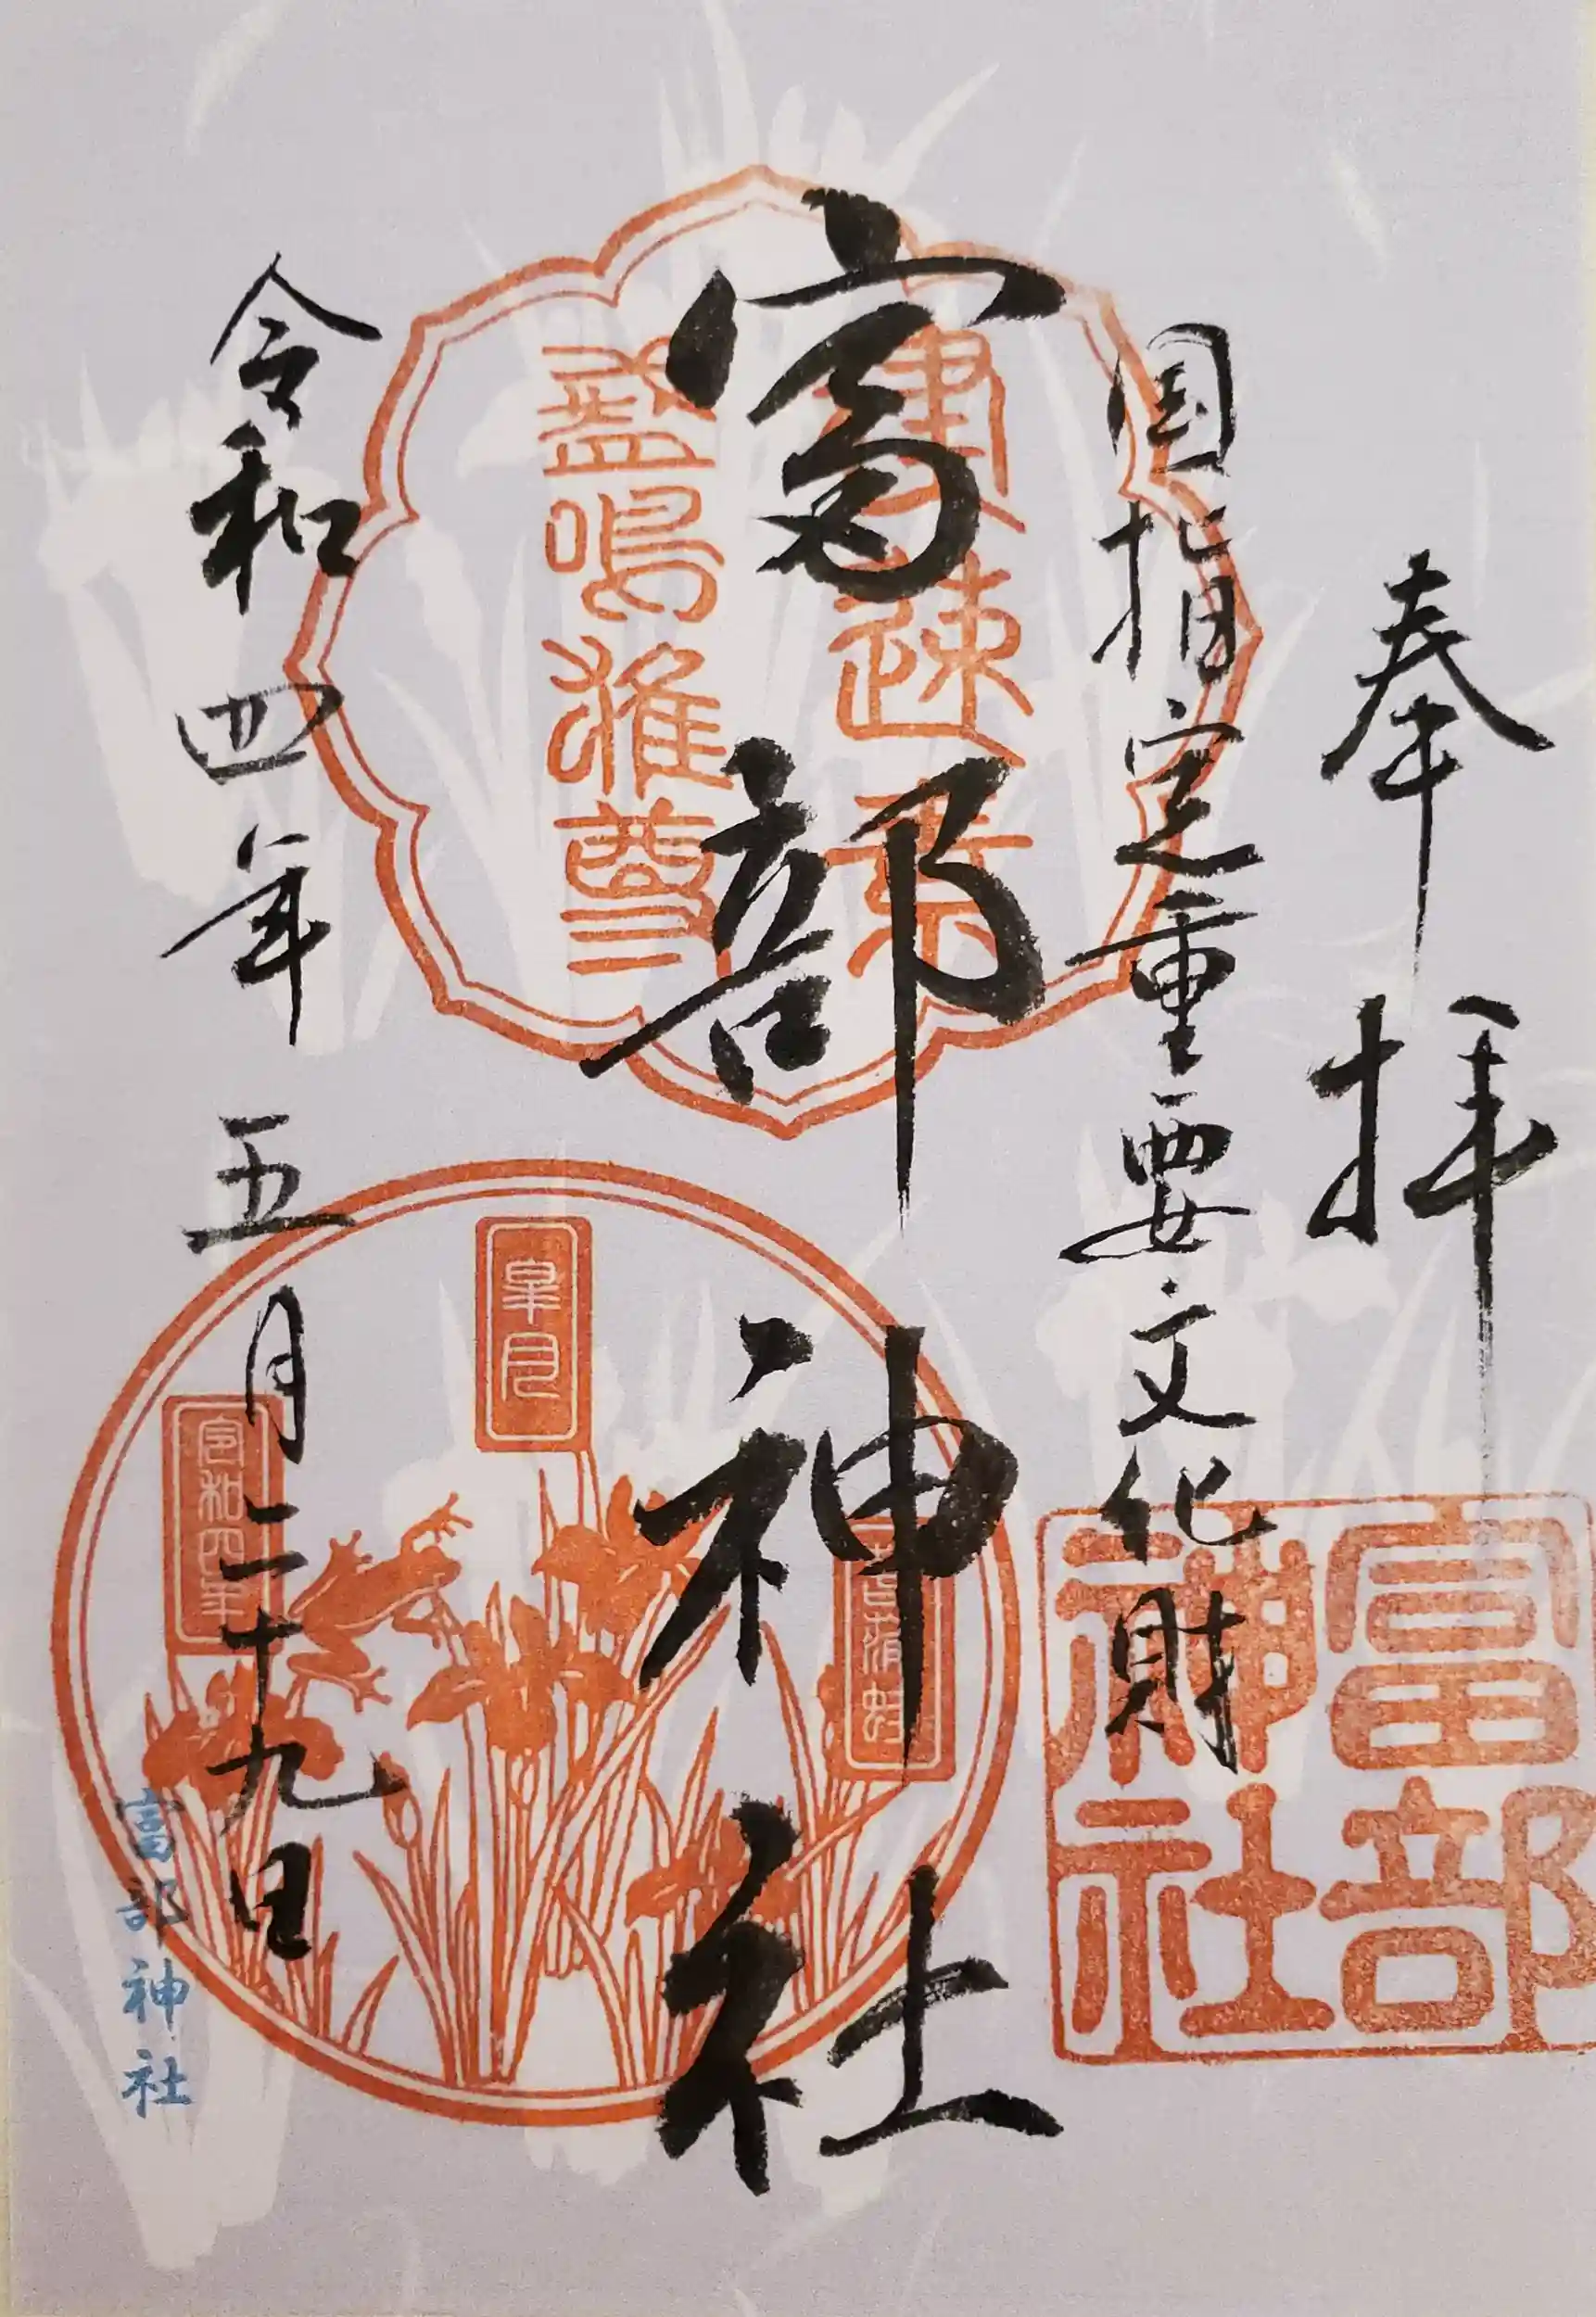 奉拝
国指定重要文化財
富部神社
建速素
盞嗚尊
富部
神社
皐月
令和四年
令和四年五月二十九日
富部神社